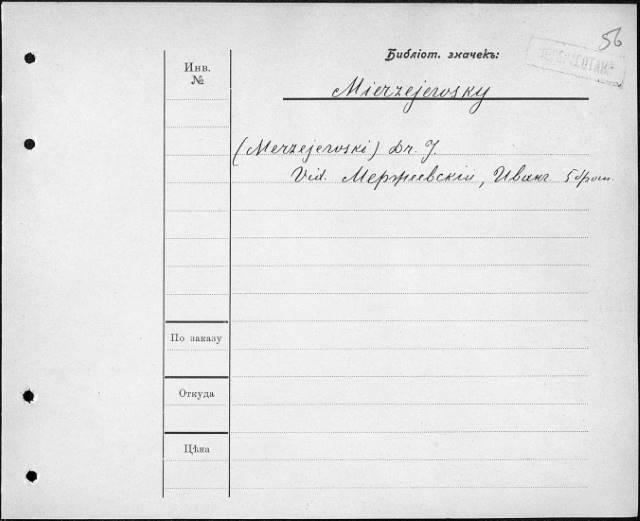 56
Библіот. значекъ:
Инв.
№
Mierzejewsky
(Merzejewski) Dr. J.
Vid. Мержеевскій, Иванъ
По заказу
Откуда
Цѣна